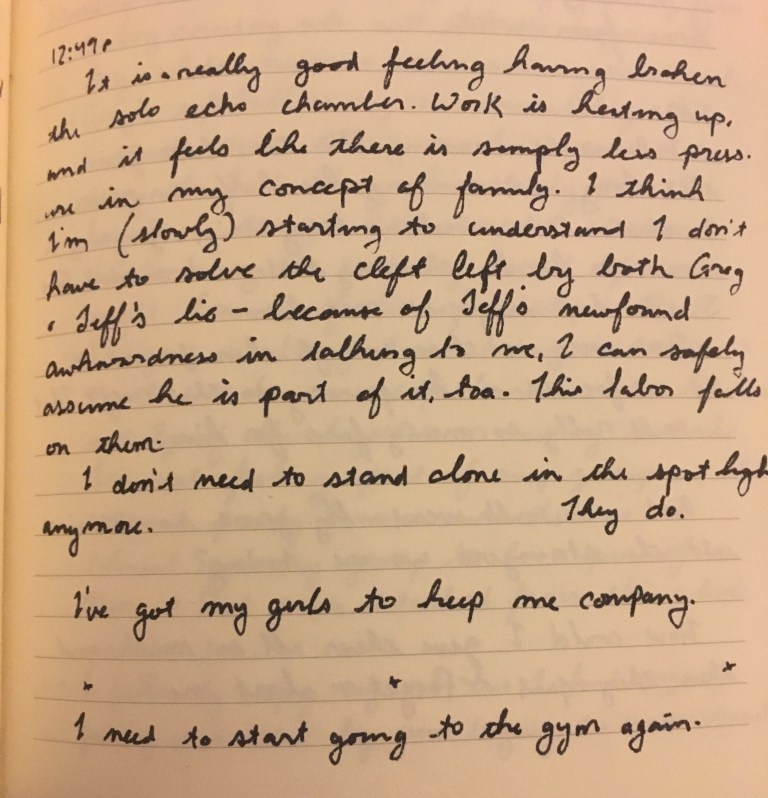 12:49p
It is a really good feeling having broken
the solo echo chamber. Work is heating up,
and it feels like there is simply less press-
ure in my concept of family. I think
I'm (slowly) starting to understand I don't
have to solve the cleft left by both Greg
& Jeff's lie - because of Jeff's newfound
awkwardness in talking to me, I can safely
assume he is part of it, too. This labor falls
on them.
I don't need to stand alone in the spotligh
anymore. They do.
I've got my girls to keep me company.
* * *
I need to start going to the gym again.